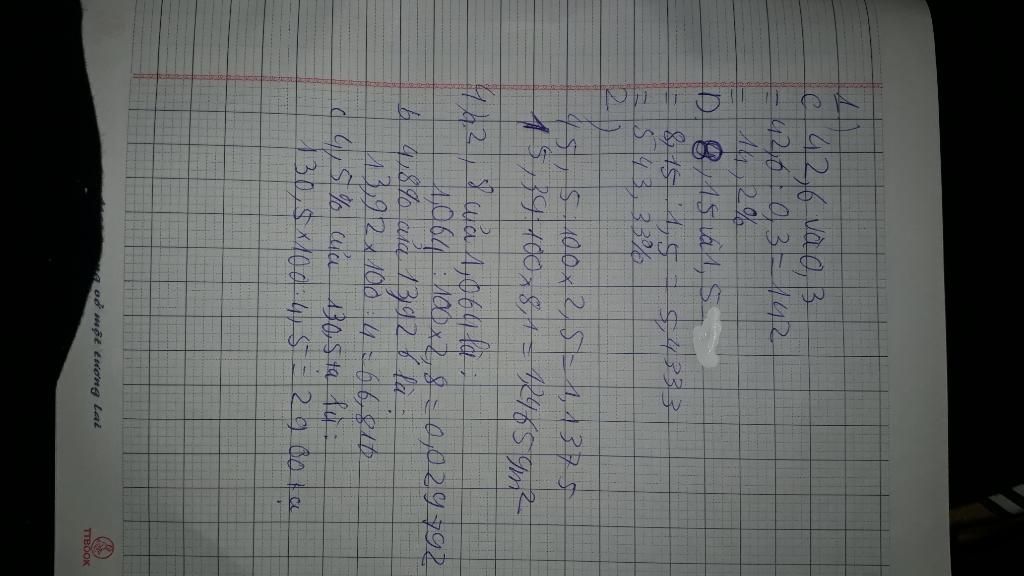 1)
C 42,6 và 0,3
= 42,6 : 0,3 = 142
= 14,2%
D. 8,15 và 1,5
= 8,15 : 1,5 = 5,4333
= 543,33%
2)
45,5:100x2,5=1,1375
15,39:100x8,1=
4)a.2,8 của 1,064 là:
1,064:100x2,8=0,029792
b 4,8% của 1392 l là:
1392x100:4=66,81b
c 4,5% của 130,5 tạ là:
130,5x100:4,5= 2900 tạ
TTBOOK